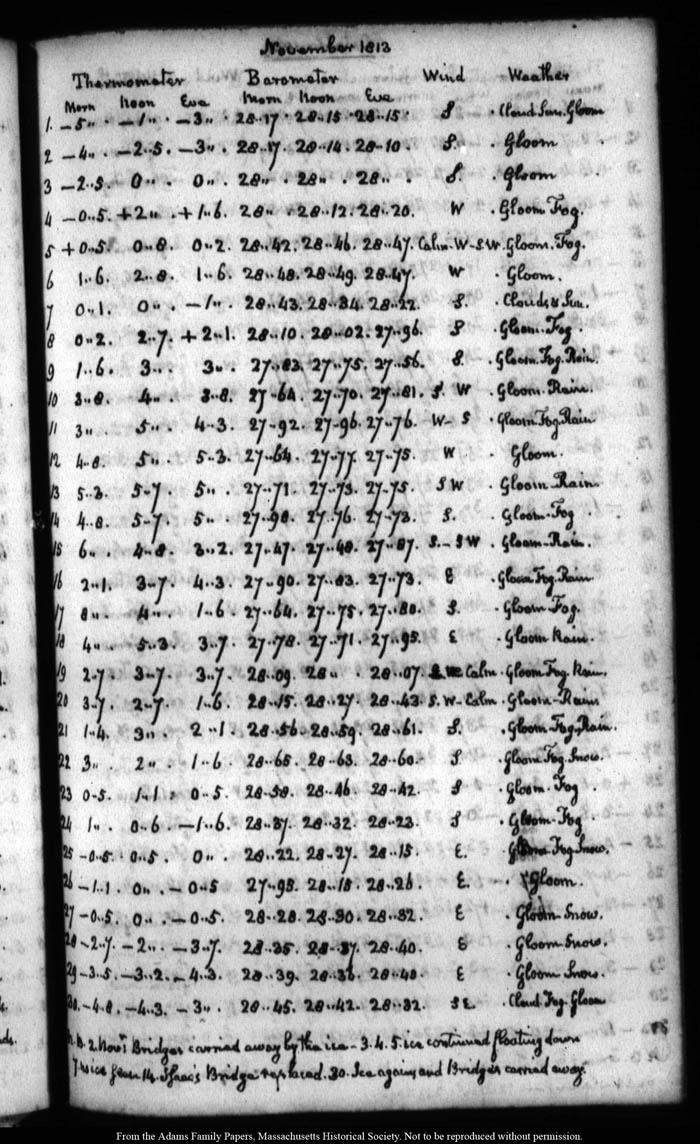 November 1813
Thermometer Barometer Wind Weather
Morn Noon Eve Morn Noon Eve
1. -5" -1" -3" 28-17 28-15 28-15 S Cloud Sun. Gloom
2 -4" -2..5. -3" 28-17. 28-14. 28-10. S. Gloom
3 -2..5. 0" 0" 28" 28" 28" S. Gloom
4 -0..5. +2" +1..6. 28" 28..12. 28..20. W Gloom Fog.
5 +0..5. 0..8. 0..2. 28..42. 28..46. 28..47. Calm. W-S.W. Gloom. Fog.
6 1..6. 2..8. 1..6. 28..48. 28..49. 28..47. W Gloom.
7 0..1. 0" -1" 28..43. 28..34. 28..22. S. Clouds & Sun.
8 0..2. 2..7. +2..1. 28..10. 28..02. 27..96. S Gloom. Fog.
9 1..6. 3" 3" 27..83. 27..75. 27..56. S. Gloom. Fog. Rain.
10 3..8. 4" 3..8. 27..64. 27..70. 27..81. S. W Gloom. Rain.
11 3" 5" 4..3. 27..92. 27..96. 27..76. W-S Gloom Fog. Rain
12 4..8. 5" 5..3. 27..64. 27..77. 27..75. W Gloom.
13 5..3. 5..7. 5" 27..71. 27..73. 27..75. S W Gloom Rain
14 4..8. 5..7. 5" 27..98. 27..76. 27..73. S. Gloom-Fog
15 6" 4..8. 3..2. 27..47. 27..48. 27..87. S.-S W Gloom-Rain.
16 2..1. 3..7. 4..3. 27..90. 27..83. 27..73. E Gloom Fog. Rain
17 8" 4" 1..6 27..64. 27..75. 27..80. S. Gloom Fog.
18 4" 5..3. 3..7. 27..78. 27..71. 27..95. E Gloom Rain.
19 2..7. 3..7. 3..7. 28..09. 28" 28..07. Calm Gloom Fog. Rain.
20 3..7. 2..7. 1..6. 28..15. 28..27. 28..43. S. W-Calm Gloom-Rain
21 1..4. 3" 2..1. 28..56. 28..59. 28..61. S. Gloom-Fog. Rain.
22 3" 2" 1..6 28..65. 28..63. 28..60. S Gloom Fog. Snow.
23 0..5. 1..1 0..5. 28..58. 28..46. 28..42. S Gloom. Fog
24 1" 0..6 -1..6. 28..37. 28..32. 28..23. S Gloom-Fog
25 -0..5. 0..5. 0" 28..22. 28..27. 28..15. E. Gloom Fog Snow.
26 -1..1. 0" -0..5 27..95. 28..15. 28..26. E. Gloom.
27 -0..5. 0" -0..5. 28..28. 28..30. 28..32. E Gloom-Snow.
28 -2..7. -2" -3..7. 28..35. 28..37. 28..40. E Gloom Snow.
29 -3..5. -3..2. -4..3. 28..39. 28..38. 28..40 E Gloom Snow.
30. -4..8. -4..3. -3" 28..45. 28..42. 28..32. S E. Cloud. Fog. Gloom
N.B. 2 Novr. Bridges carried away by the ice - 3. 4. 5. ice continued floating down
14. Isaac's Bridge replaced. 30. Ice again and Bridges carried away.
From the Adams Family Papers, Massachusetts Historical Society. Not to be reproduced without permission.